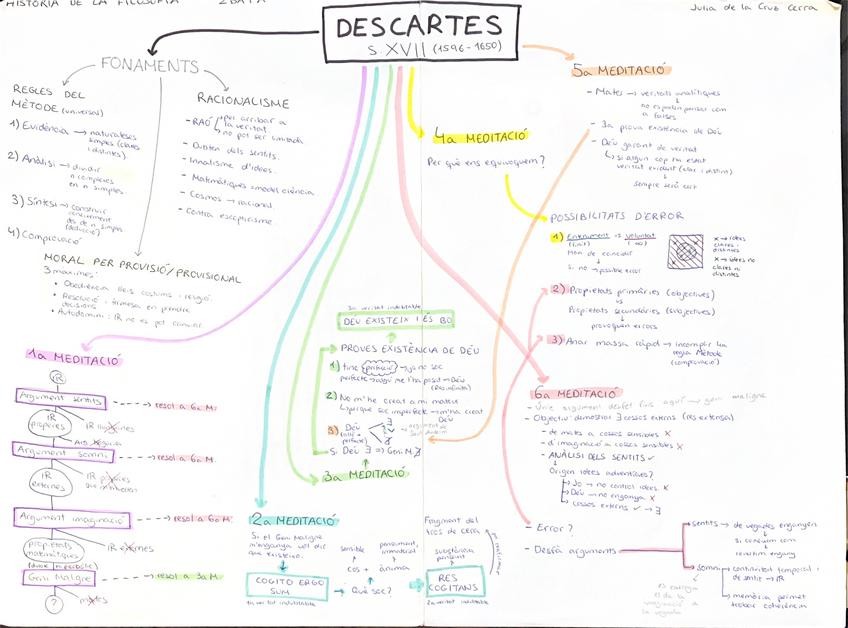 HISTÒRIA DE LA FILOSOFIA
2BATX
Julia de la Cruz Cerra
DESCARTES
S. XVII (1596-1650)
FONAMENTS
REGLES DEL
MÈTODE (universal)
1) Evidència → naturaleses
simples (clares
i distintes)
2) Anàlisi → dividir
n complexes
en n simples.
3) Síntesi → construir
(deducció)
4) Comprovació
RACIONALISME
- RAÓ per arribar a
la veritat
no pot ser limitada
- Dubten dels sentits.
- Innatisme d'idees.
- Matemàtiques = model ciència
- Cosmos → racional
- Contra escepticisme.
MORAL PER PROVISIÓ/PROVISIONAL
3 màximes:
• Obediència lleis costums i religió.
• Resolució i fermesa en prendre
decisions
• Autodomini: IR no es pot canviar.
1a MEDITACIÓ
IR
Argument sentits
→ resol a 6a M.
IR
properes
IR
Argument somni
→ resol a 6a M.
IR
externes
IR
Argument imaginació
→ resol a 6a M.
propietats
matemàtiques
IR externes
Geni Maligne
→ resol a 3a M.
?
mates
2a MEDITACIÓ
Si el Geni Maligne
m'enganya vol dir
que existeixo.
COGITO ERGO
SUM
1a veritat indubtable
sensible
cos +
pensament,
immaterial
ànima
→ Què soc? →
Fragment del
tros de cera
substància
pensant
RES
COGITANS
2a veritat indubtable
3a veritat indubtable
DÉU EXISTEIX I ÉS BO
PROVES EXISTÈNCIA DE DÉU
1) tinc perfecció → jo no soc
perfecte → algú me l'ha posat → Déu
(Res infinita)
2) No m'he creat a mi mateix
↳ perquè soc imperfecte → m'ha creat
Déu
3) Déu
∃
Si Déu ∃ ⇒ Geni M. ∄
3a MEDITACIÓ
4a MEDITACIÓ
Per què ens equivoquem?
5a MEDITACIÓ
- Mates → veritats analítiques
↓
no es poden pensar com
a falses
- 3a prova existència de Déu
- Déu garant de veritat
↳ si algun cop ha estat
veritat evident (clar i distint)
↓
sempre serà cert
POSSIBILITATS D'ERROR
1) Enteniment vs Voluntat
(limit) (∞)
Han de coincidir
↓
Si no → possible error
x → idees
clares i
distintes
x → idees no
clares ni
distintes
2) Propietats primàries (objectives)
vs
Propietats secundàries (subjectives)
↓
provoquen errors
3) Anar massa ràpid → incomplir 4a
regla Mètode
(comprovació)
6a MEDITACIÓ
- Únic argument desfet fins aquí → geni maligne
- Objectiu: demostrar ∃ cossos externs (res extensa)
- de mates a cossos sensibles X
- d'imaginació a cossos sensibles X
- ANÀLISI DELS SENTITS ✓
↓
Origen idees adventícies?
Jo → no control idees. X
Déu → no enganya X
cossos externs ✓ → ∃
- Error?
- Desfà arguments
sentits → de vegades enganyen
↓
si coneixem com
↓
revertim engany
somni
continuïtat temporal i
de sentit → IR
memòria permet
trobar coherència